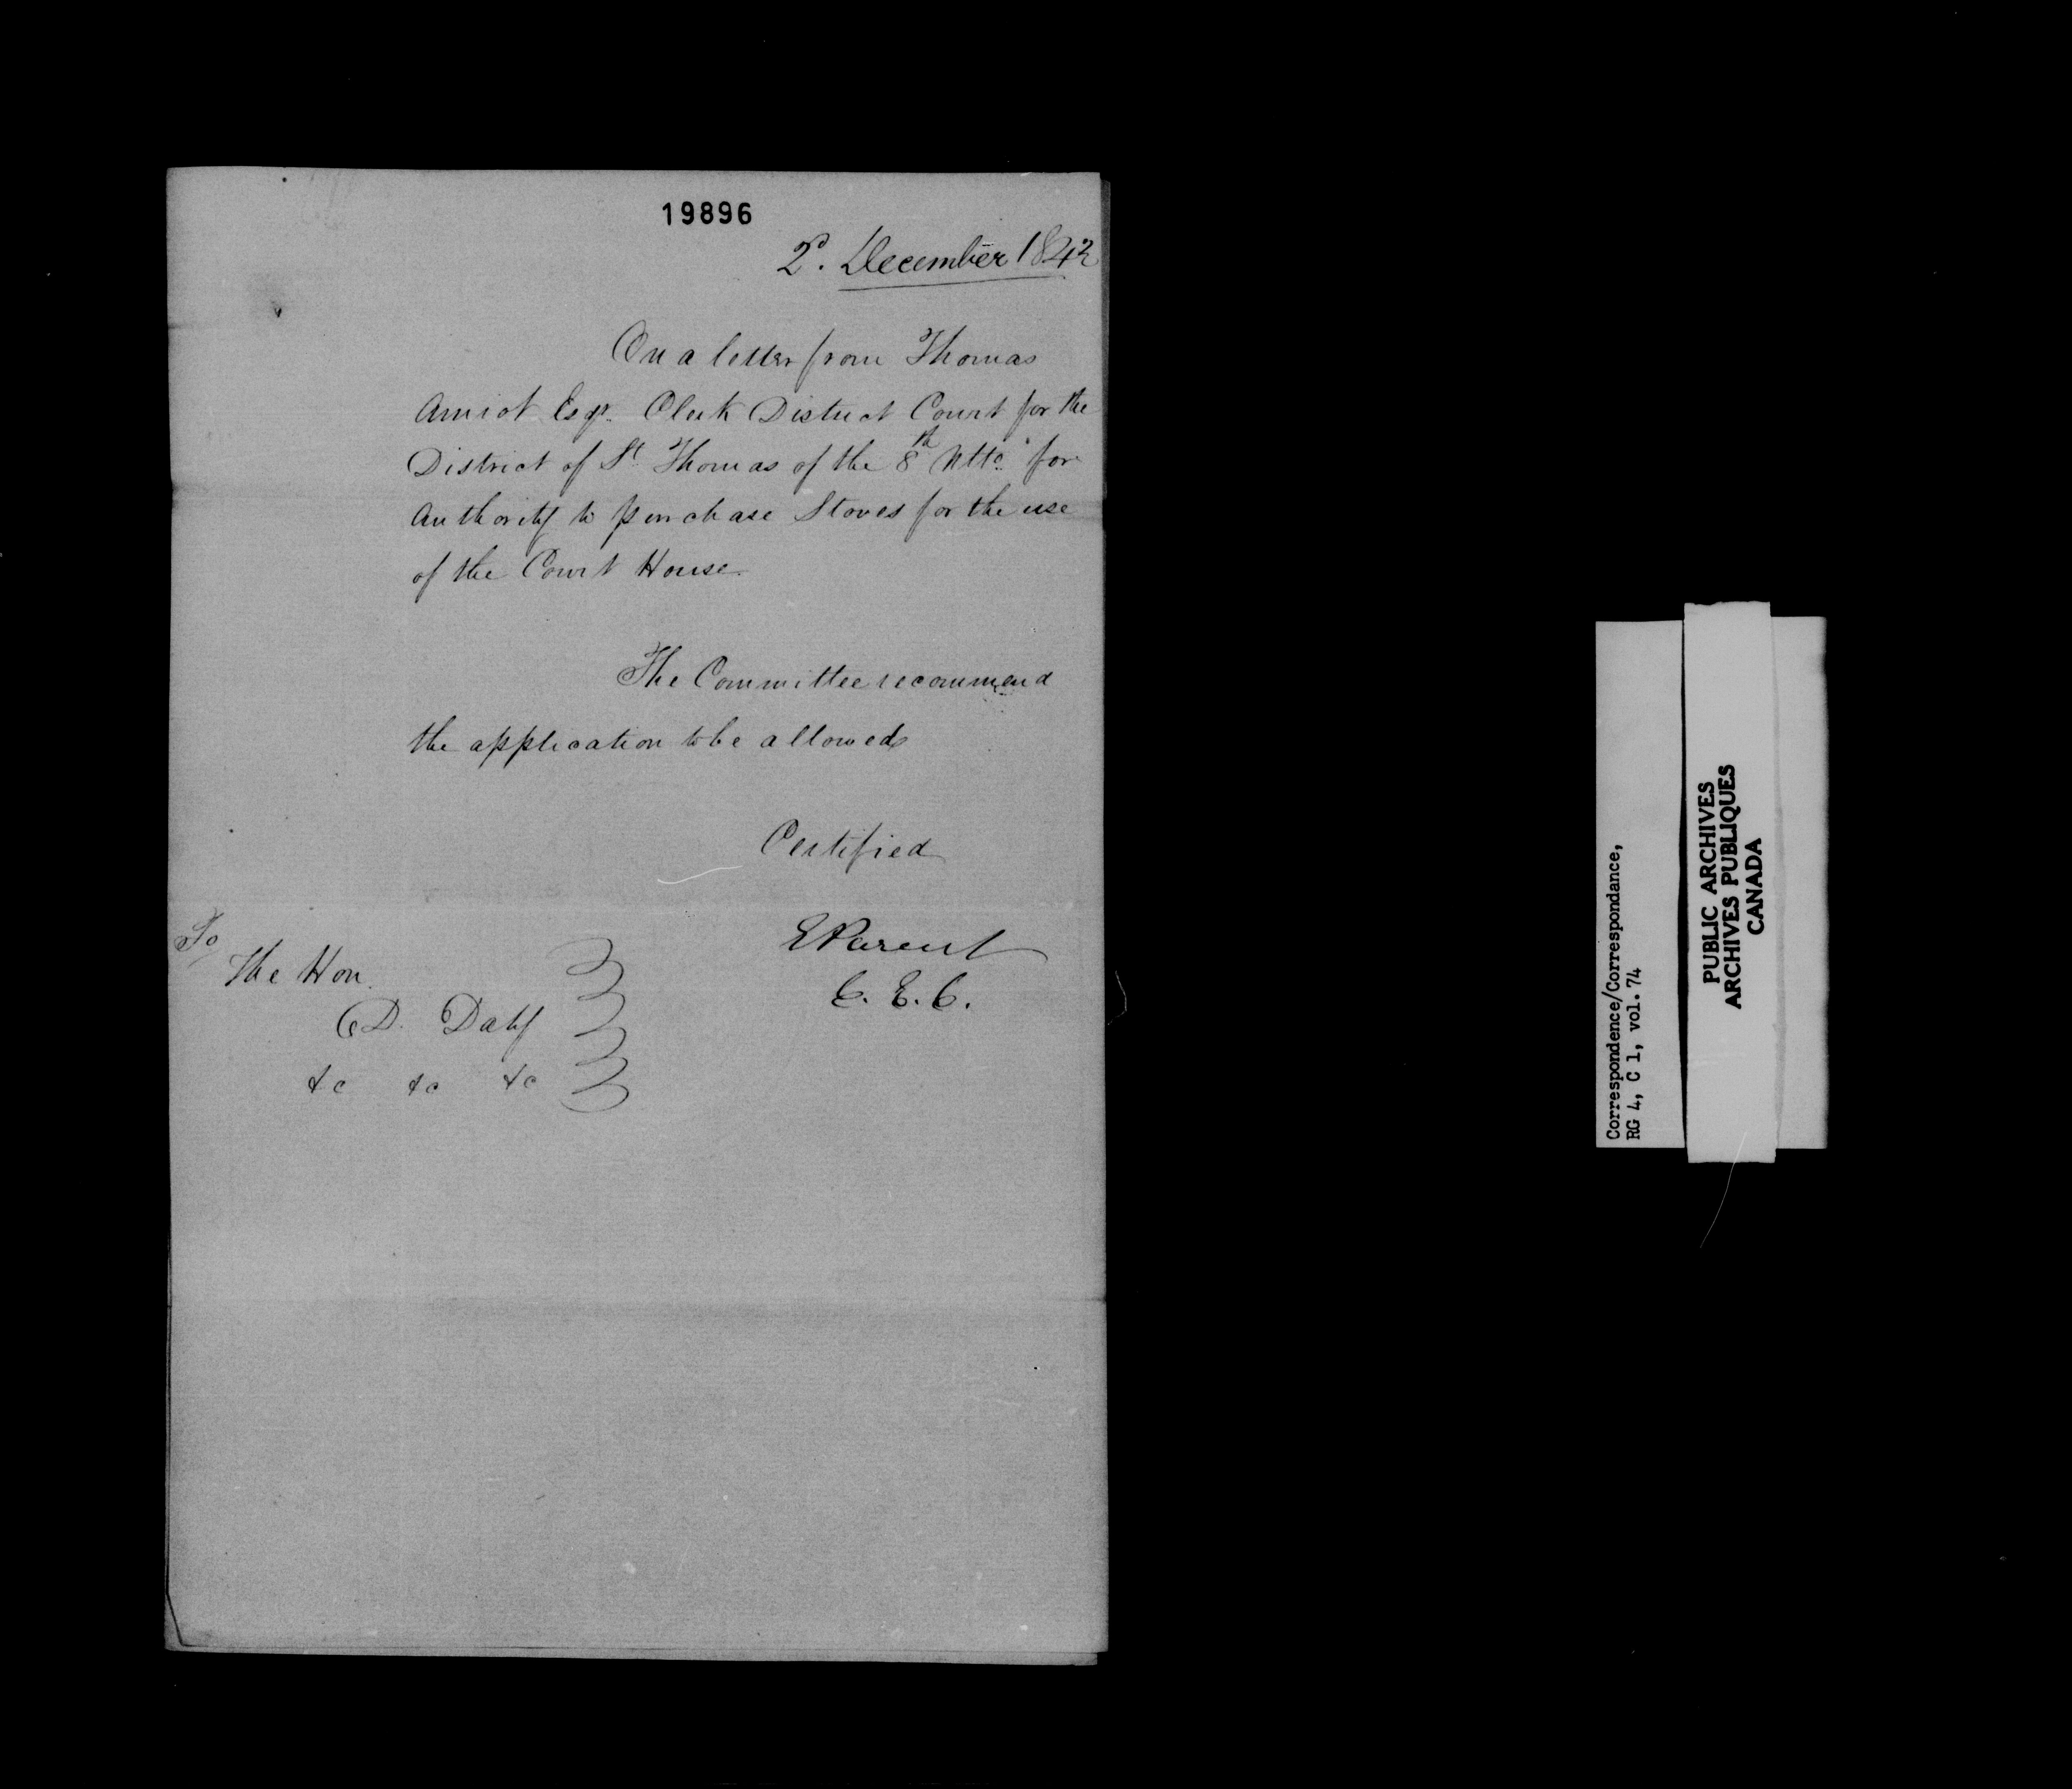 19896
2d. December 1842
On a letter from Thomas
Amiot Esqr. Clerk District Court for the
District of St Thomas of the 8th Ulto. for
Authority to purchase Stoves for the use
of the Court House.
The Committee recommend
the application to be allowed
Certified
EParent
C. E. C.
To
The Hon.
D. Daly
&c &c &c
Correspondence/Correspondance,
RG 4, C 1, vol. 74
PUBLIC ARCHIVES
ARCHIVES PUBLIQUES
CANADA